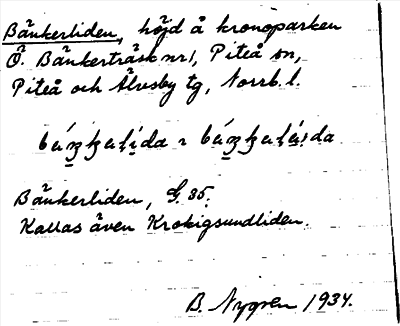 Bänkerliden, höjd å kronoparken
Ö. Bänkerträsk nr 1, Piteå sn,
Piteå och Älvsby tg, Norrb. l.
Bänkerliden, G. 35.
Kallas även Krokigsundliden.
B. Nygren 1934.